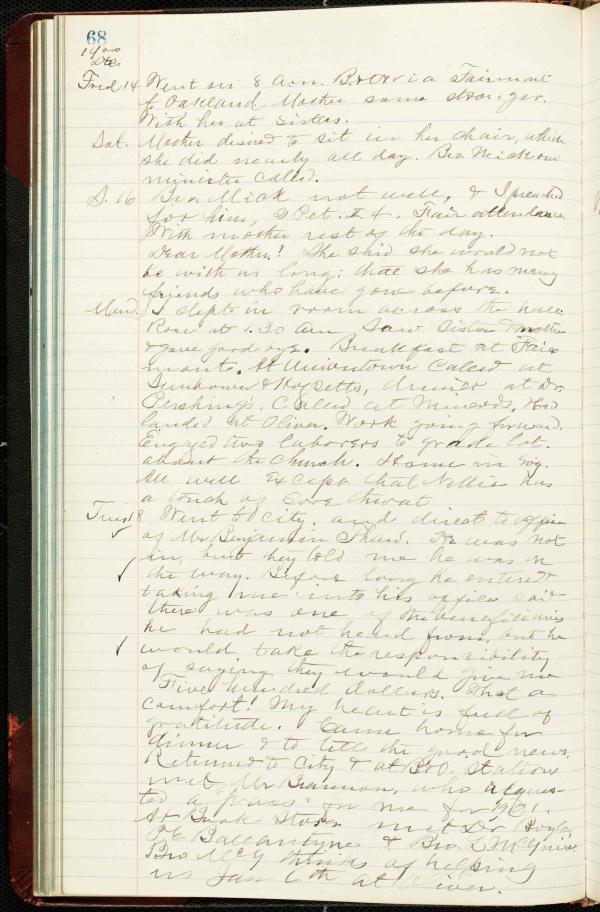 68
1900
Dec
Frid 14 Went on 8 a.m. B&O via Fairmont
to Oakland. Mother some stronger.
With her at Sisters.
Sat. Mother desired to sit in her chair, which
she did nearly all day. Bro. Mick our
minister called.
S. 16 Bro. Mick not well, & I preached
for him, 2 Pet. I. 4. Fair attendance
With mother rest of the day.
Dear Mother! She said she would not
be with us long; that she has many
friends who have gone before.
Mond. I slept in room across the hall
Rose at 1.30 am, Saw Sister Mother
& gave good bye. Breakfast at Fair
mont. At Uniontown called at
& Hogsetts, dinner at Dr.
Pershing's. Called at Minerds. Had
landed at Oliver. Work going forward.
Engaged two laborers to grade lot.
about the Church. Home in Evg.
All well Except that Nellie has
a touch of Sore throat
Tues 18 Went to City. and direct to office
of Mr Benjamin Thaw. He was not
in, but they told me he was on
the way. Before long he entered &
taking me into his office said
there was one of the beneficiaries
he had not heard from, but he
would take the responsibility
of saying they would give me
Five hundred dollars. What a
comfort! My heart is full of
gratitude. Came home for
dinner & to tell the good news.
Returned to City & at B&O. Station
met Mr Brannon, who reques-
ted a "pass" for me for '01.
At Book Store met Dr Boyle,
T.E. Ballantyne & Bro. L. McGuire.
Bro McG thinks of helping
us Jan 6th at Oliver.